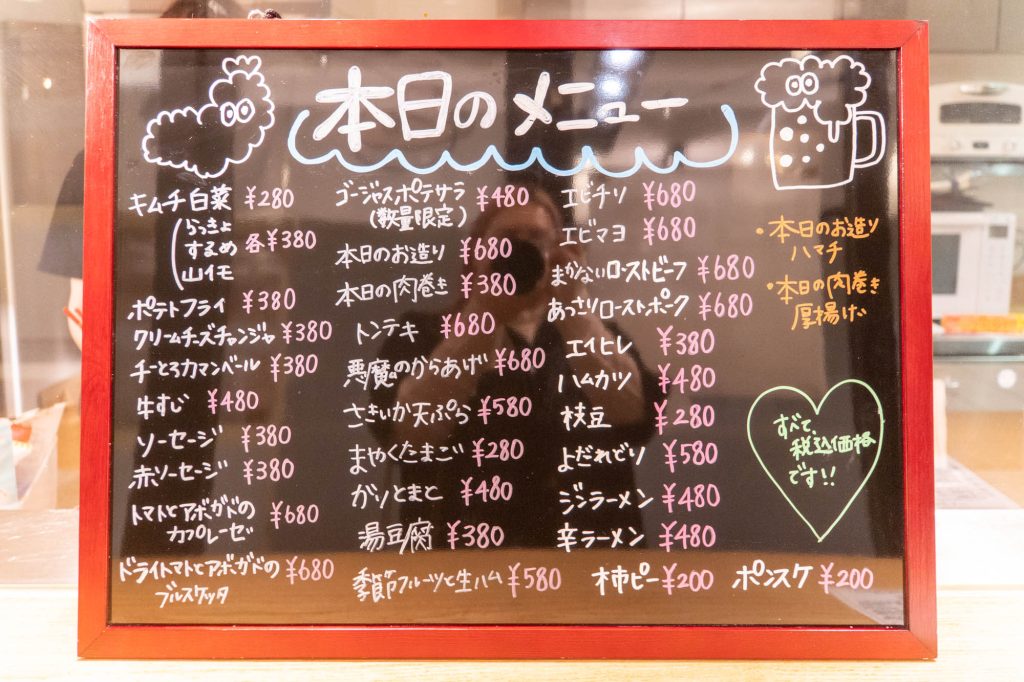 本日のメニュー
キムチ白菜 ¥280
らっきょ
するめ 各¥380
山イモ
ポテトフライ ¥380
クリームチーズチャンジャ ¥380
チーとろカマンベール ¥380
牛すじ ¥480
ソーセージ ¥380
赤ソーセージ ¥380
トマトとアボガドの ¥680
カプレーゼ
ドライトマトとアボガドの ¥680
ブルスケッタ
ゴージャスポテサラ ¥480
(数量限定)
本日のお造り ¥680
本日の肉巻き ¥380
トンテキ ¥680
悪魔のからあげ ¥680
さきいか天ぷら ¥580
まやくたまご ¥280
ガリとまと ¥480
湯豆腐 ¥380
季節フルーツと生ハム ¥580
エビチリ ¥680
エビマヨ ¥680
まかないローストビーフ ¥680
あっさりローストポーク ¥680
エイヒレ ¥380
ハムカツ ¥480
枝豆 ¥280
よだれどり ¥580
ジンラーメン ¥480
辛ラーメン ¥480
柿ピー ¥200
ポンスケ ¥200
・本日のお造り
ハマチ
・本日の肉巻き
厚揚げ
すべて、
税込価格
です!!